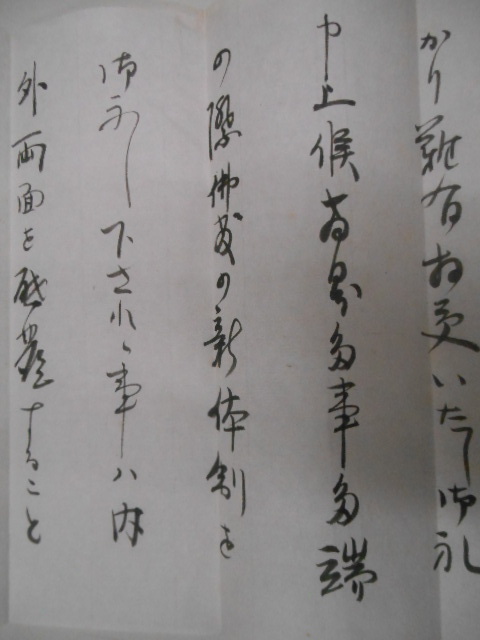 かり難有お受いたし御礼
申上候 界多事多端
の際佛教の新体制を
御示し下され候事ハ内
外両面を啓發すること